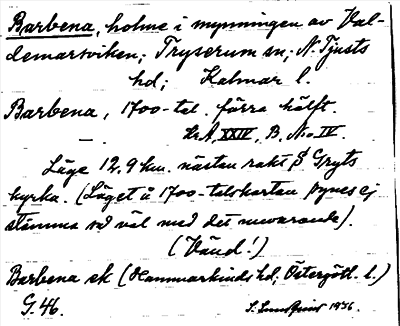 Barbena, holme i mynningen av Val-
demarsviken; Tryserum sn; N. Tjusts
hd; Kalmar l.
Barbena, 1700-tal. förra hälft.
— . XXIV, B. No IV.
Läge 12,9 km. nästan rakt S Gryts
kyrka. (Läget å 1700-talskartan synes ej
stämma så väl med det nuvarande).
(Vänd!)
Barbena sk (Hammarkinds hd, Östergötl. l.)
G. 46.
S. Sundqvist 1936.